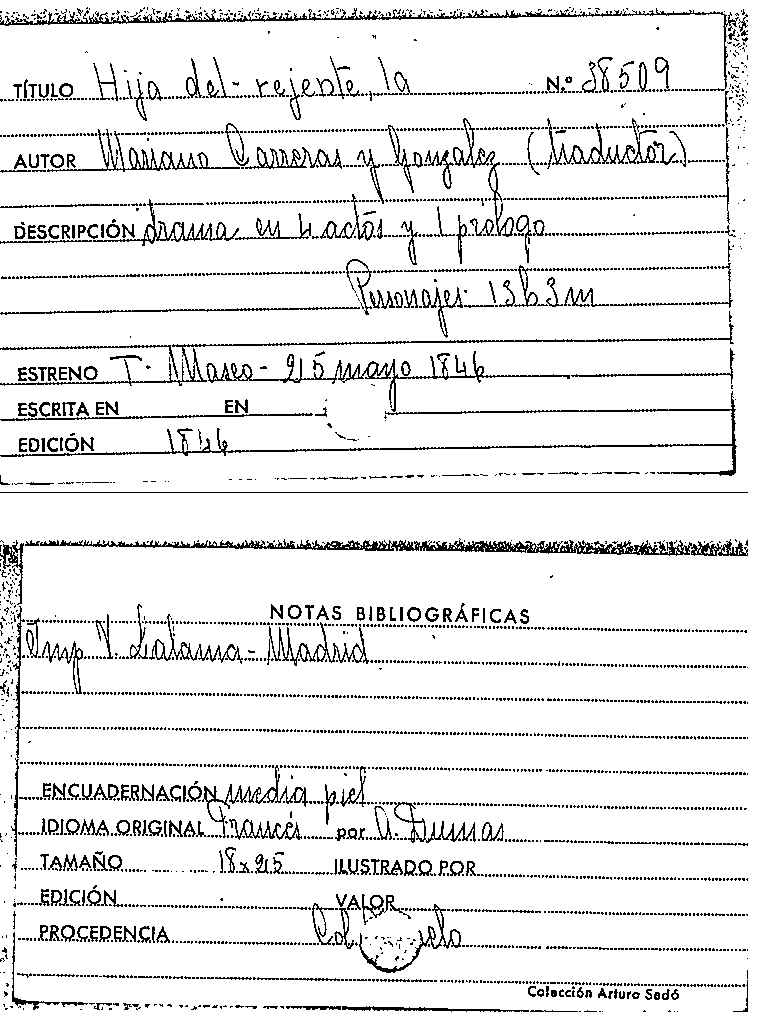 TÍTULO Hija del rejente, la N.º 38509
AUTOR Mariano Carreras y Gonzalez (traductor)
DESCRIPCIÓN drama en 4 actos y 1 prólogo
Personajes 13h3m
ESTRENO T. Museo - 25 mayo 1846
ESCRITA EN EN
EDICIÓN 1846
NOTAS BIBLIOGRÁFICAS
Imp V. Lalama - Madrid
ENCUADERNACIÓN media piel
IDIOMA ORIGINAL Francés por A. Dumas
TAMAÑO 18x25 ILUSTRADO POR
EDICIÓN VALOR
PROCEDENCIA Col
Colección Arturo Sedó